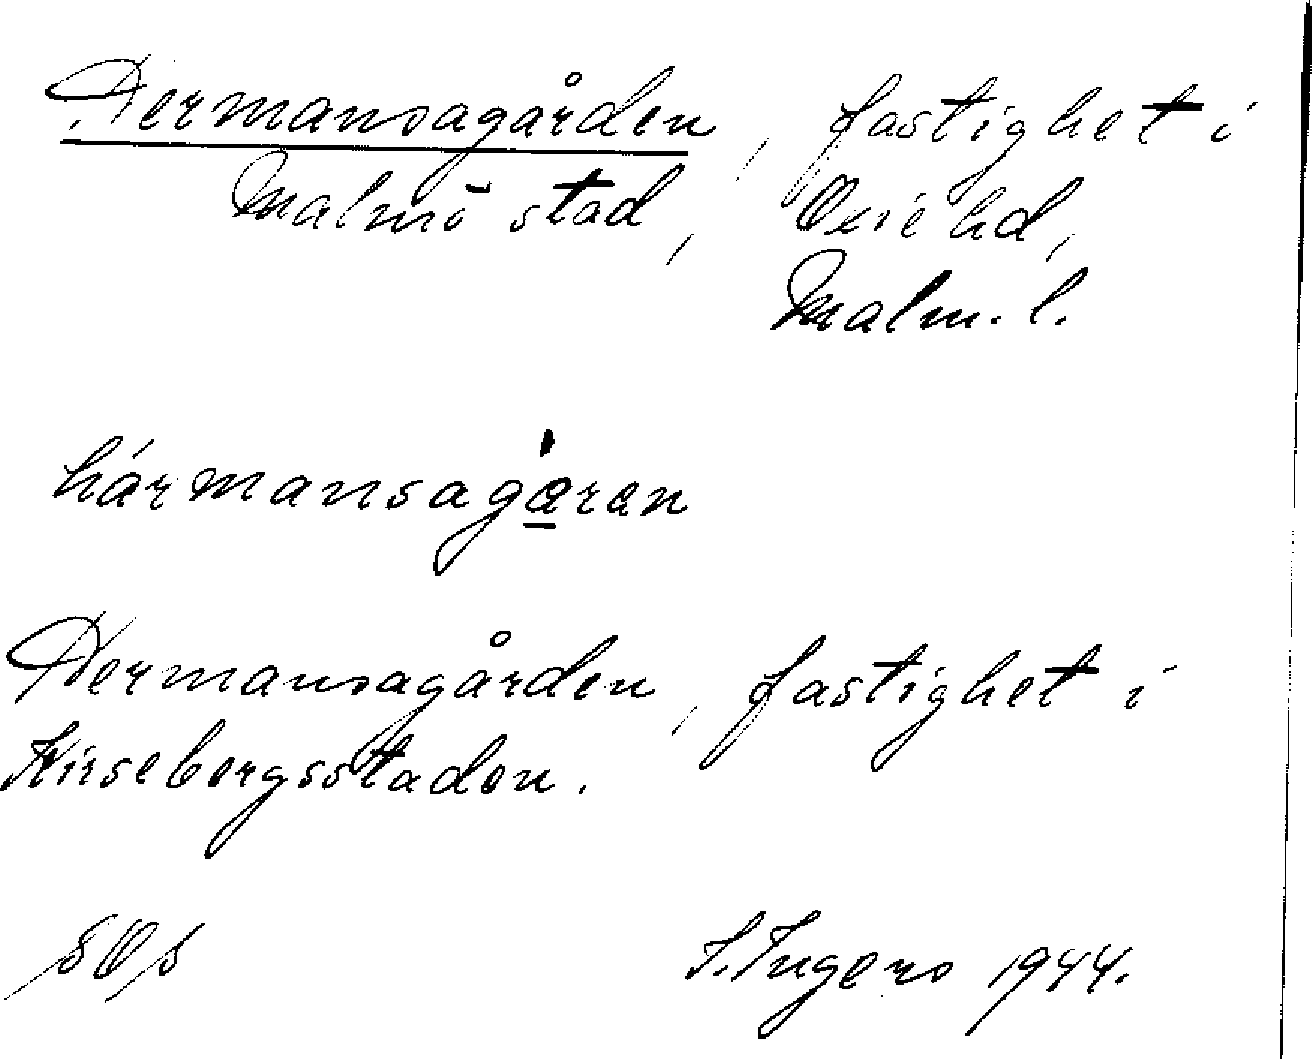 Hermansagården, fastighet i
Malmö stad, Oxie hd,
Malm. l.
hármansagáran
Hermansagården, fastighet i
Kirsebergsstaden.
I. Ingers 1944.